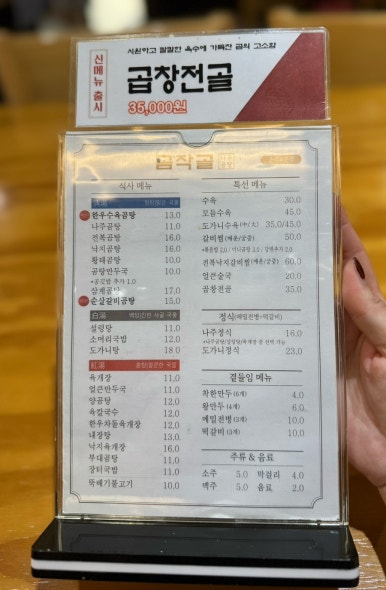 신메뉴 출시
시원하고 깔끔한 육수에 가득찬 곱의 고소함
곱창전골
35,000원
곰작골
식사 메뉴
한우수육곰탕 13.0
나주곰탕 11.0
전복곰탕 16.0
낙지곰탕 16.0
황태곰탕 10.0
곰탕만두국 10.0
+곰국밥 추가 1.0
삼계곰탕 17.0
순살갈비곰탕 15.0
白湯
설렁탕 11.0
소머리국밥 12.0
도가니탕 18.0
紅湯
육개장 11.0
얼큰만두국 11.0
양곰탕 12.0
육칼국수 12.0
한우차돌육개장 12.0
내장탕 13.0
낙지육개장 16.0
부대곰탕 11.0
장터국밥 11.0
뚝배기불고기 10.0
특선 메뉴
수육 30.0
모듬수육 45.0
도가니수육(中/大) 35.0/45.0
갈비찜(매운/궁중) 50.0
전복낙지갈비찜(매운/궁중) 60.0
얼큰술국 20.0
곱창전골 35.0
정식(메밀전병+떡갈비)
나주정식 16.0
도가니정식 23.0
곁들임 메뉴
착한만두(6개) 4.0
왕만두(4개) 6.0
메밀전병(3개) 10.0
떡갈비(3개) 10.0
주류 & 음료
소주 5.0 막걸리 4.0
맥주 5.0 음료 2.0